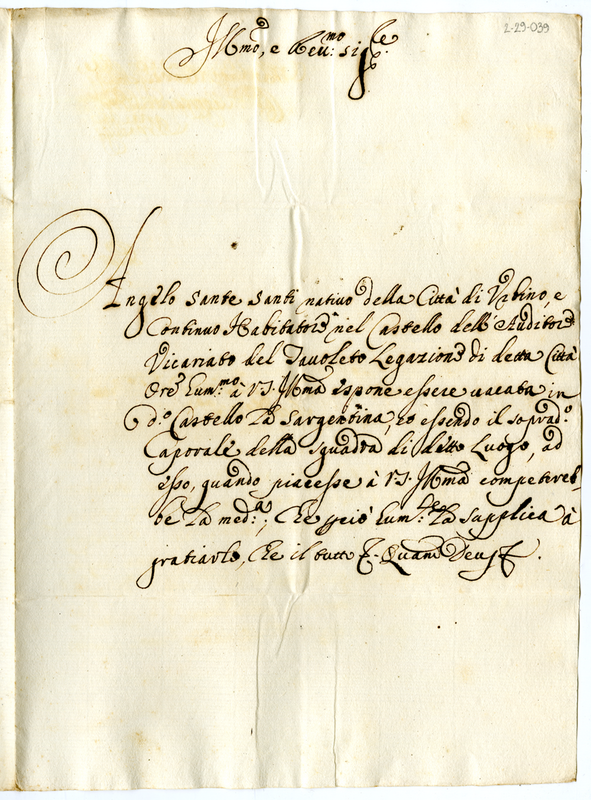 2-29-039
Ill.mo, e Reu:mo sig.re
Angelo Sante Santi natiuo della Città di Vrbino, e
Continuo Habitatore nel Castello dell'Auditore
Vicariato del Tauoleto Legazione di detta Città
Ore Eum:mo à VS Ill.ma espone essere uacata in
d.o Castello La Sargentina, et essendo il soprad.o
Caporale della squadra di detto Luogo, ad
esso, quando piacesse à VS. Ill.ma competereb,
be La med.a; Che perciò Eum.te La supplica à
gratiarlo, Che il tutto &. Quam Deus &.